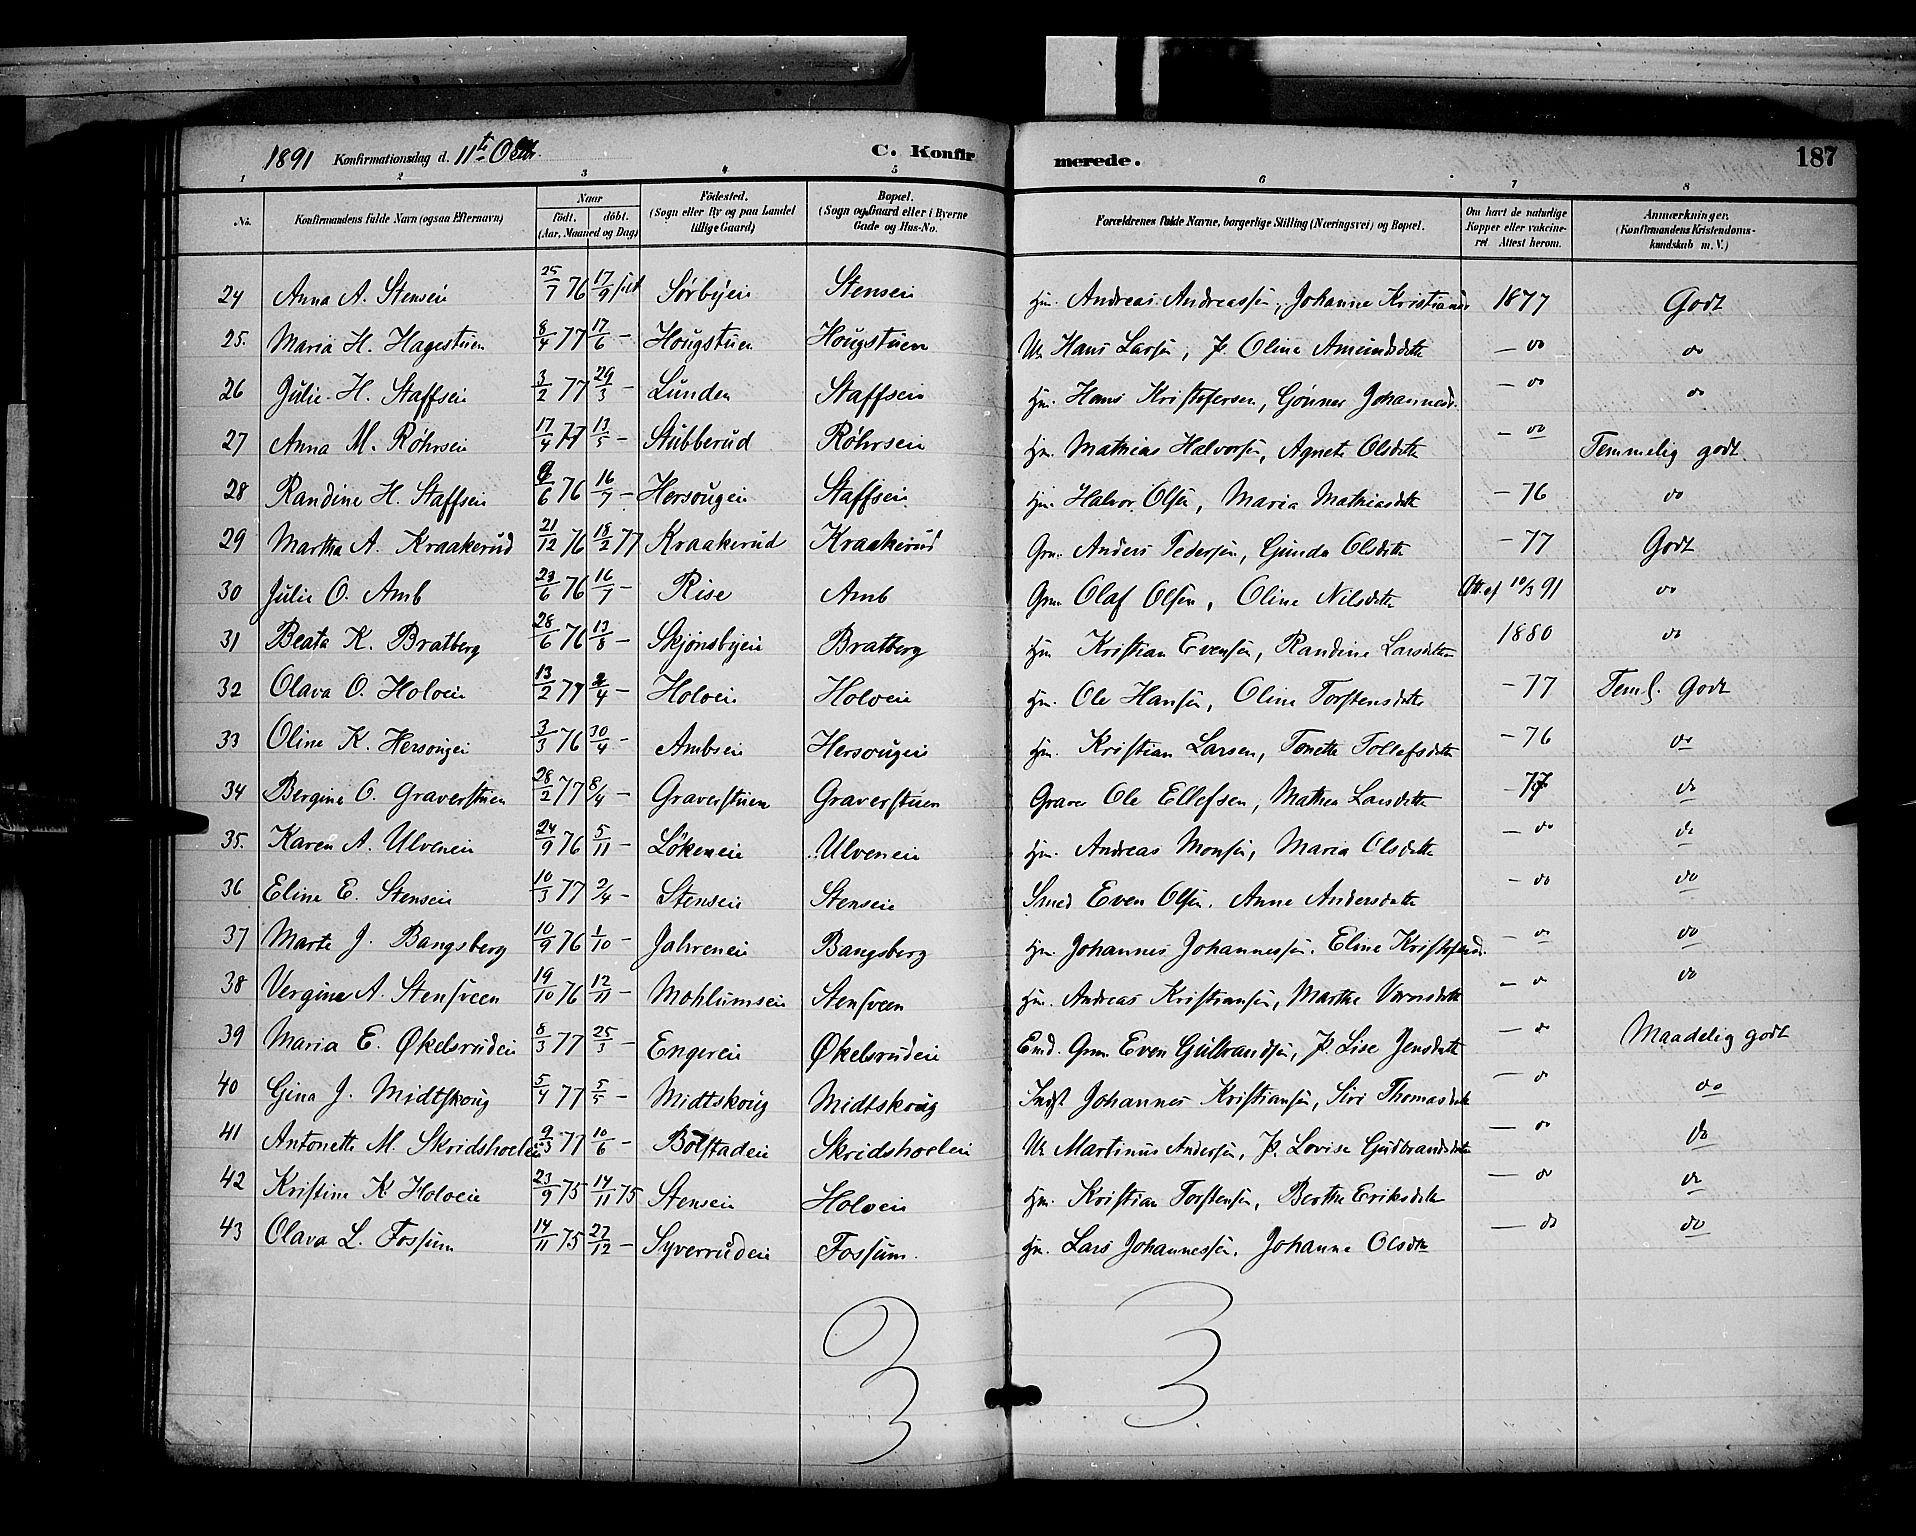 1891 Konfirmationsdag d. 11te Octbr. C. Konfir merede. 187
1 2 3 4 5 6 7 8
No. Konfirmandens fulde Navn (ogsaa Efternavn) Naar födt. döbt. (Aar, Maaned og Dag) Födested. (Sogn eller By og paa Landet tillige Gaard) Bopæl. (Sogn og Gaard eller i Byerne Gade og Hus-No. Forældrenes fulde Navne, borgerlige Stilling (Næringsvei) og Bopæl. Om havt de naturlige Kopper eller vakcineret. Attest herom. Anmærkninger. (Konfirmandens Kristendomskundskab m. V.)
24 Anna A. Stenseie 25/7 76 17/9 Sørbyeie Stenseie Hm. Andreas Andreassen, Johanne Kristiansd 1877 Godt
25. Maria H. Hagestuen 8/4 77 17/6 – Hougstuen Hougstuen Uk Hans Larsen, P. Oline Amundsdatter – do do
26 Julie H. Staffseie 3/2 77 29/3 – Lunden Staffseie Hm. Hans Kristofersen, Gønner Johannesd. – do do
27 Anna M. Røhrseie 17/4 77 13/5 – Stubberud Røhrseie Hm. Mathias Halvorsen, Agnete Olsdatter – do Temmelig godt.
28 Randine H. Staffseie 9/6 76 16/7 – Hersougeie Staffseie Hm. Halvor Olsen, Maria Mathiasdatter – 76 do
29 Martha A. Kraakerud 21/12 76 18/2 77 Kraakerud Kraakerud Grm. Anders Pedersen, Gunda Olsdatter – 77 Godt
30 Julie O. Amb 23/6 76 16/7 – Rise Amb Grm. Olaf Olsen, Oline Nilsdatter Att. af 10/3 91 do
31 Beata K. Bratberg 28/6 76 13/8 – Skjønsbyeie Bratberg Hm Kristian Evensen, Randine Larsdatter 1880 do
32 Olava O. Holoeie 13/2 77 2/4 – Holoeie Holoeie Hm. Ole Hansen, Oline Torstensdatter – 77 Teml. Godt
33 Oline K. Hersougeie 3/3 76 30/4 – Ambseie Hersougeie Hm. Kristian Larsen, Tonette Tollefsdatter – 76 do
34 Bergine O. Graverstuen 28/2 77 8/4 – Graverstuen Graverstuen Graver Ole Ellefsen, Mathea Larsdatter – 77 do
35. Karen A. Ulveneie 24/9 76 5/11 – Løkeneie Ulveneie Hm. Andreas Monsen, Maria Olsdatter – do do
36 Eline E. Stenseie 10/3 77 2/4 – Stenseie Stenseie Smed Even Olsen. Anne Andersdatter – do do
37 Marte J. Bangsberg 10/9 76 1/10 – Jahreneie Bangsberg Hm. Johannes Johannessen. Eline Kristofersd. – do do
38 Vergine A. Stensveen 19/10 76 12/11 – Mohlumseie Stensveen Hm. Andreas Kristiansen, Marthe – do do
39 Maria E. Økelsrudeie 8/3 77 25/3 – Engereie Økelsrudeie Em. Grm. Even Gulbrandsen, P. Lise Jensdatter – do Maadelig godt
40 Gina J. Midtskoug 5/4 77 5/5 – Midtskoug Midtskoug Indst Johannes Kristiansen, Siri Thomasdatter – do do
41 Antonette M. Skridsholeie 9/3 77 10/6 – Bolstadeie Skridshoeleie Uk Martinus Andersen, P. Lovise Gudbrandsdatter – do do
42 Kristine K Holoeie 23/9 75 14/11 75 Stenseie Holoeie Hm. Kristian Torstensen, Berthe Eriksdatter – do do
43 Olava L. Fossum 14/11 75 27/12 – Syverrudeie Fossum. Hm. Lars Johannessen. Johanne Olsdtr – do do
3 3